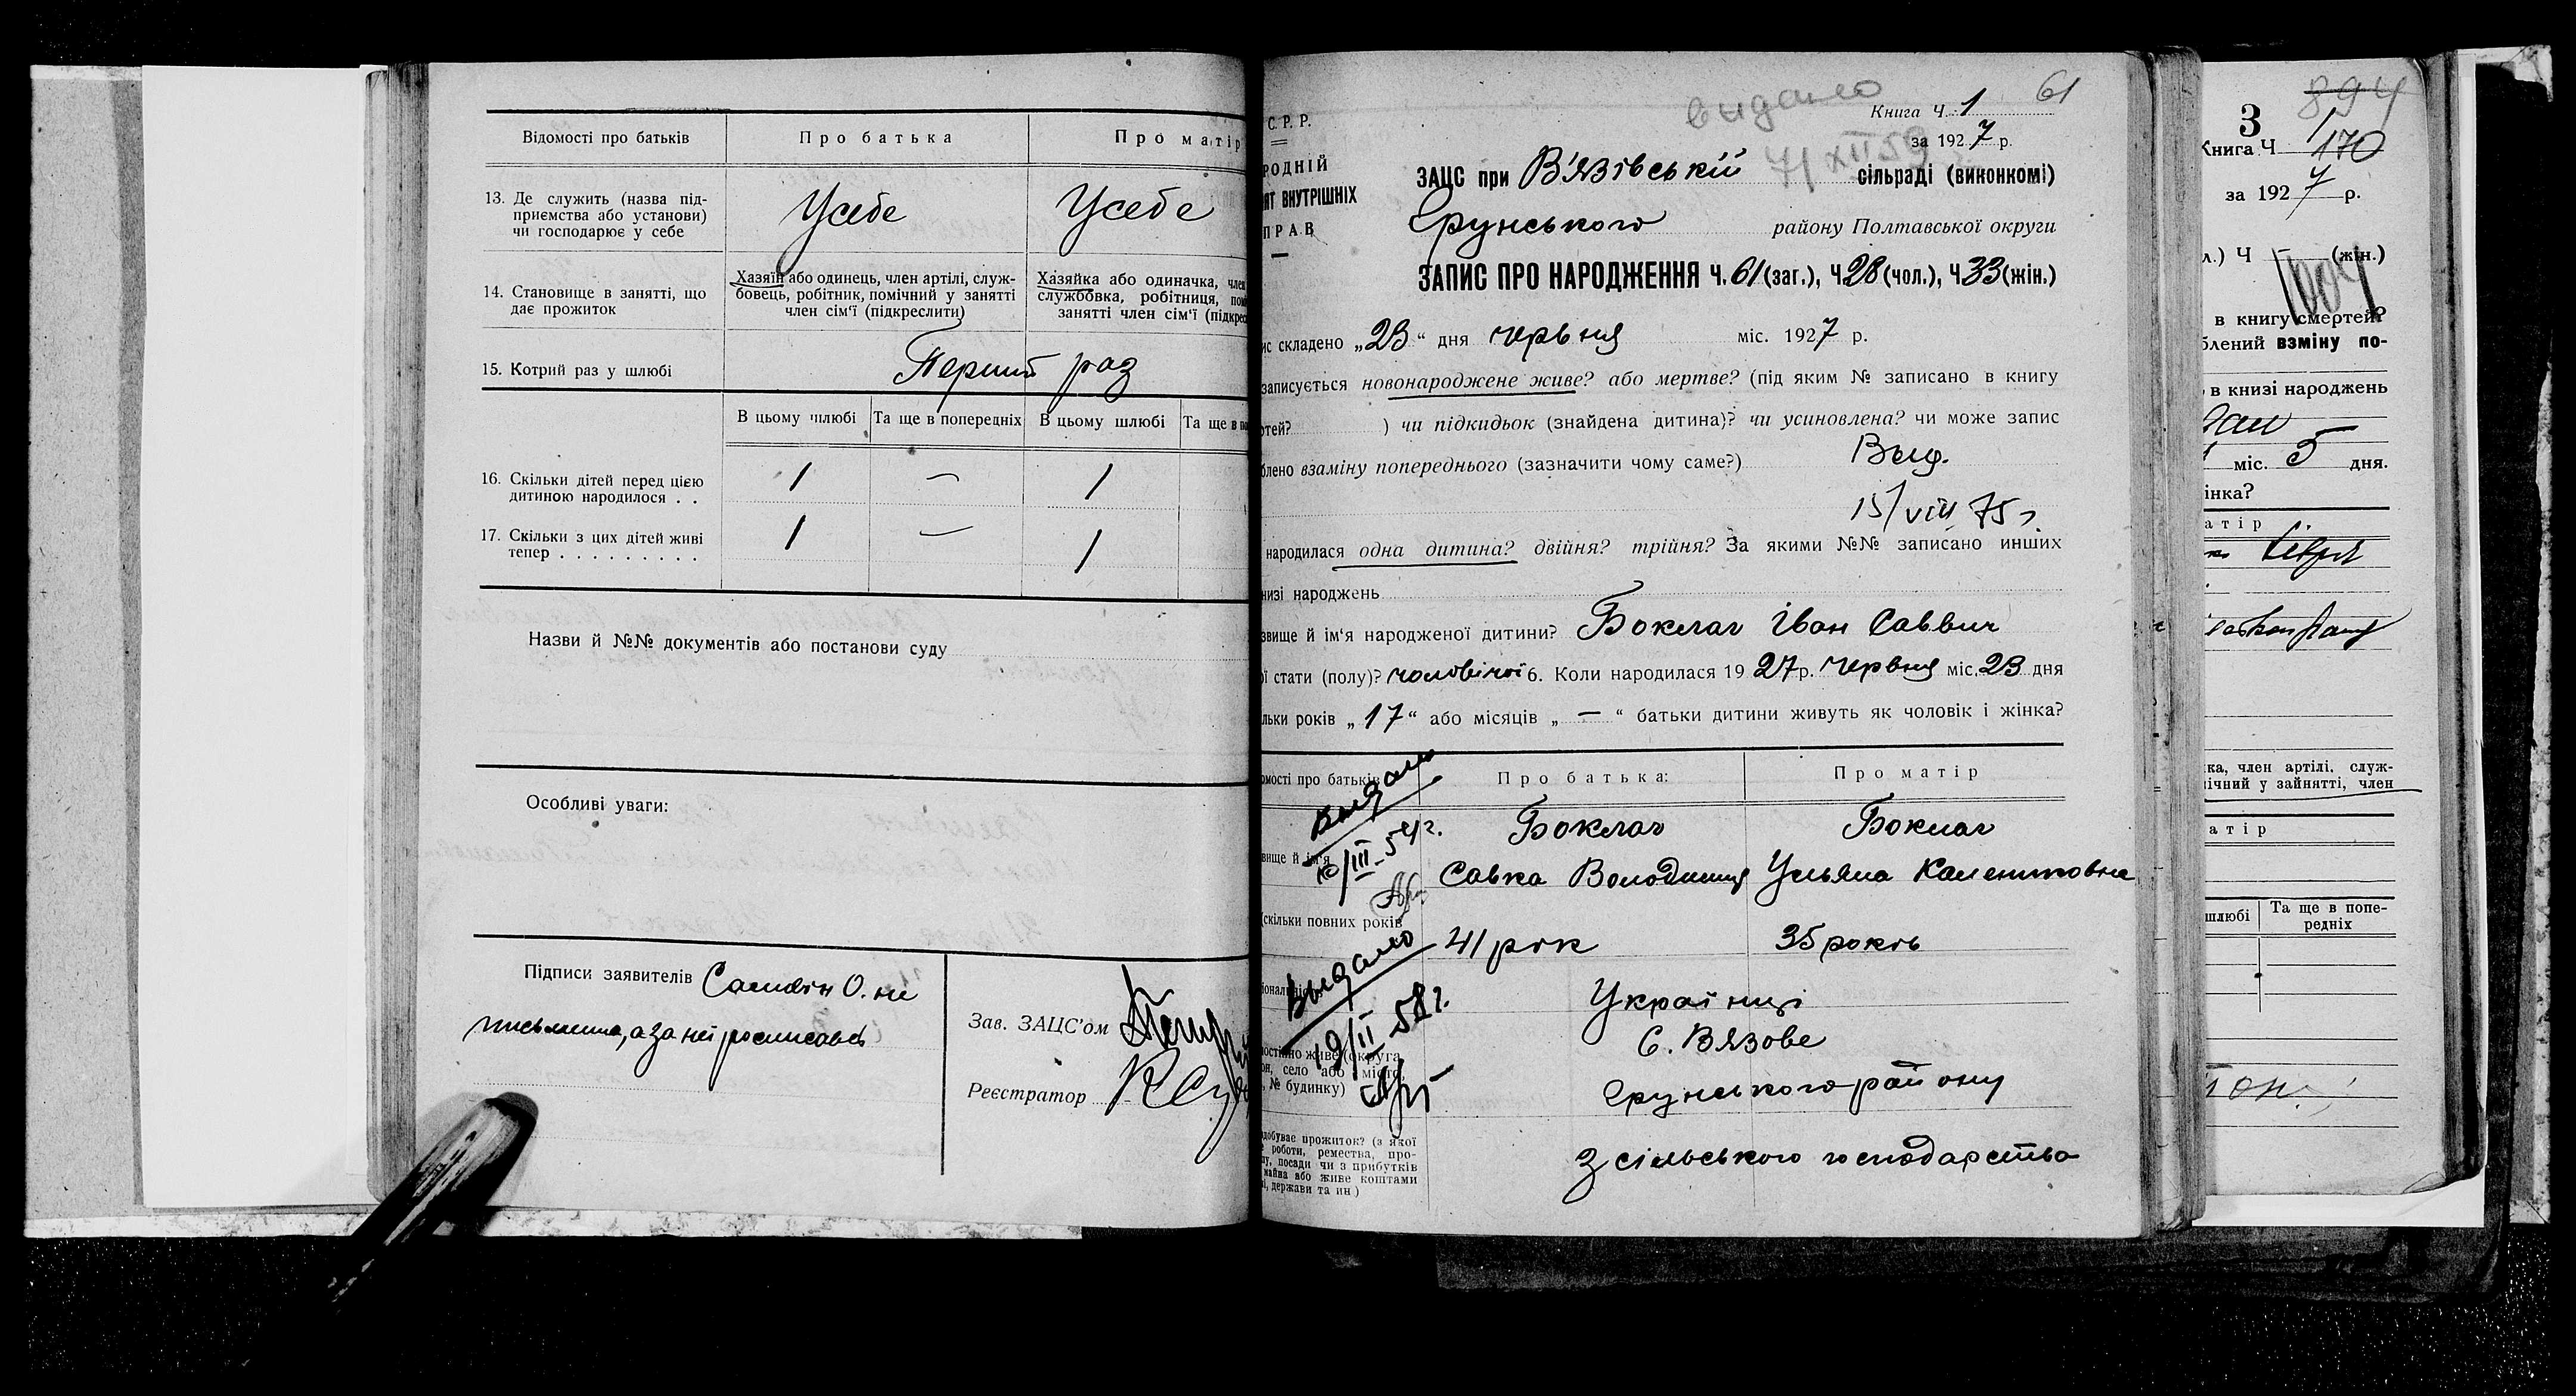 Відомості про батьків
Про батька
Про матір
13. Де служить (назва під-
приємства або установи)
чи господарює у себе
Усебе
Усебе
14. Становище в занятті, що
дає прожиток
Хазяїн або одинець, член артілі, служ-
бовець, робітник, помічний у занятті
член сім'ї (підкреслити)
Хазяйка або одиначка, член
службовка, робітниця, пом
занятті член сім'ї (підкрес
15. Котрий раз у шлюбі
Перший раз
В цьому шлюбі
Та ще в попередніх
В цьому шлюбі
Та ще в по
16. Скільки дітей перед цією
дитиною народилося . .
1 — 1
17. Скільки з цих дітей живі
тепер . . . . . . . . .
1 — 1
Назви й №№ документів або постанови суду
Особливі уваги:
Підписи заявителів О. не
письменна, а за неї росписавсь
Зав. ЗАЦС'ом
Реєстратор
61
С. Р. Р.
РОДНІЙ
ЯТ ВНУТРІШНІХ
ПРАВ
выдано
Книга Ч. 1
за 1927 р.
7/XII 59
ЗАЦС при В'язівській сільраді (виконкомі)
Грунського району Полтавської округи
ЗАПИС ПРО НАРОДЖЕННЯ Ч. 61 (заг.), Ч 28 (чол.), Ч 33 (жін.)
ис складено „23“ дня червня міс. 1927 р.
записується новонароджене живе? або мертве? (під яким № записано в книгу
ртей? ) чи підкидьок (знайдена дитина)? чи усиновлена? чи може запис
блено взаміну попереднього (зазначити чому саме?)
Выд.
15/VIII 75 г.
народилася одна дитина? двійня? трійня? За якими №№ записано инших
низі народжень
звище й ім'я народженої дитини? Боклаг Іван Саввич
ої стати (полу)? чоловічої 6. Коли народилася 1927 р. червня міс. 23 дня
льки років „17“ або місяців „—“ батьки дитини живуть як чоловік і жінка?
омості про батьків
Про батька:
Про матір
Выдано
10/III-54 г.
вище й ім'я
Боклаг
Савка
Боклаг
Ульяна Калениковна
(скільки повних років
41 рок
35 років
Выдано
19/II-58 г.
Українці
постійно живе (округа,
он, село або місто,
, № будинку)
С. Вязове
Грунського району
здобуває прожиток? (з якої
роботи, ремества, про-
су, посади чи з прибутків
майна або живе коштами
ні, держави та ин.)
З сільського господарства
894
3
Книга Ч 170
за 1927 р.
л.) Ч (жін.)
в книгу смертей?
блений взміну по-
в книзі народжень
міс. 5 дня.
інка?
атір
ка, член артілі, служ-
ічний у зайнятті, член
атір
шлюбі
Та ще в попе-
редніх